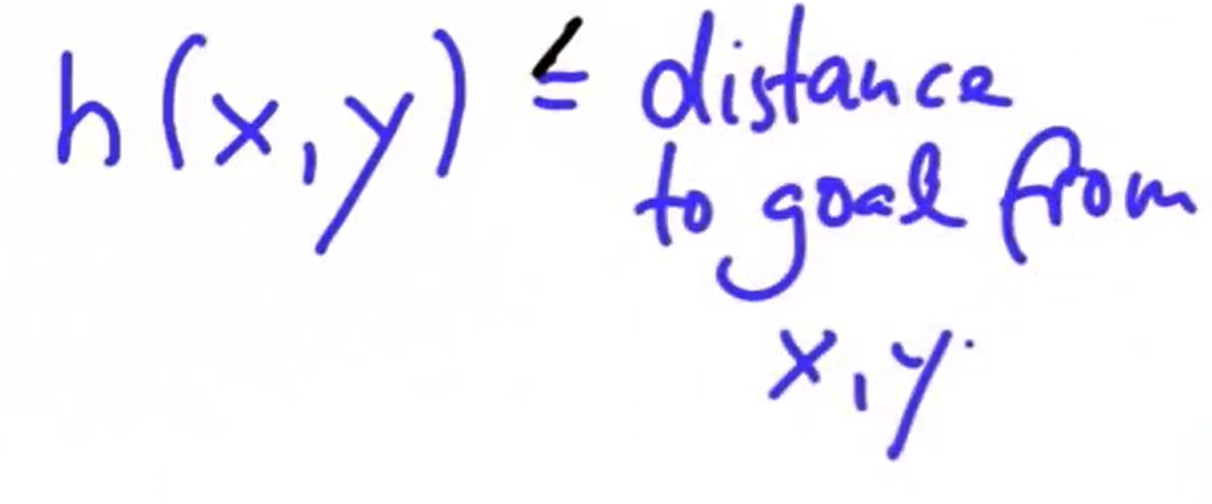 h(x,y) ≤ distance
to goal from
x,y.